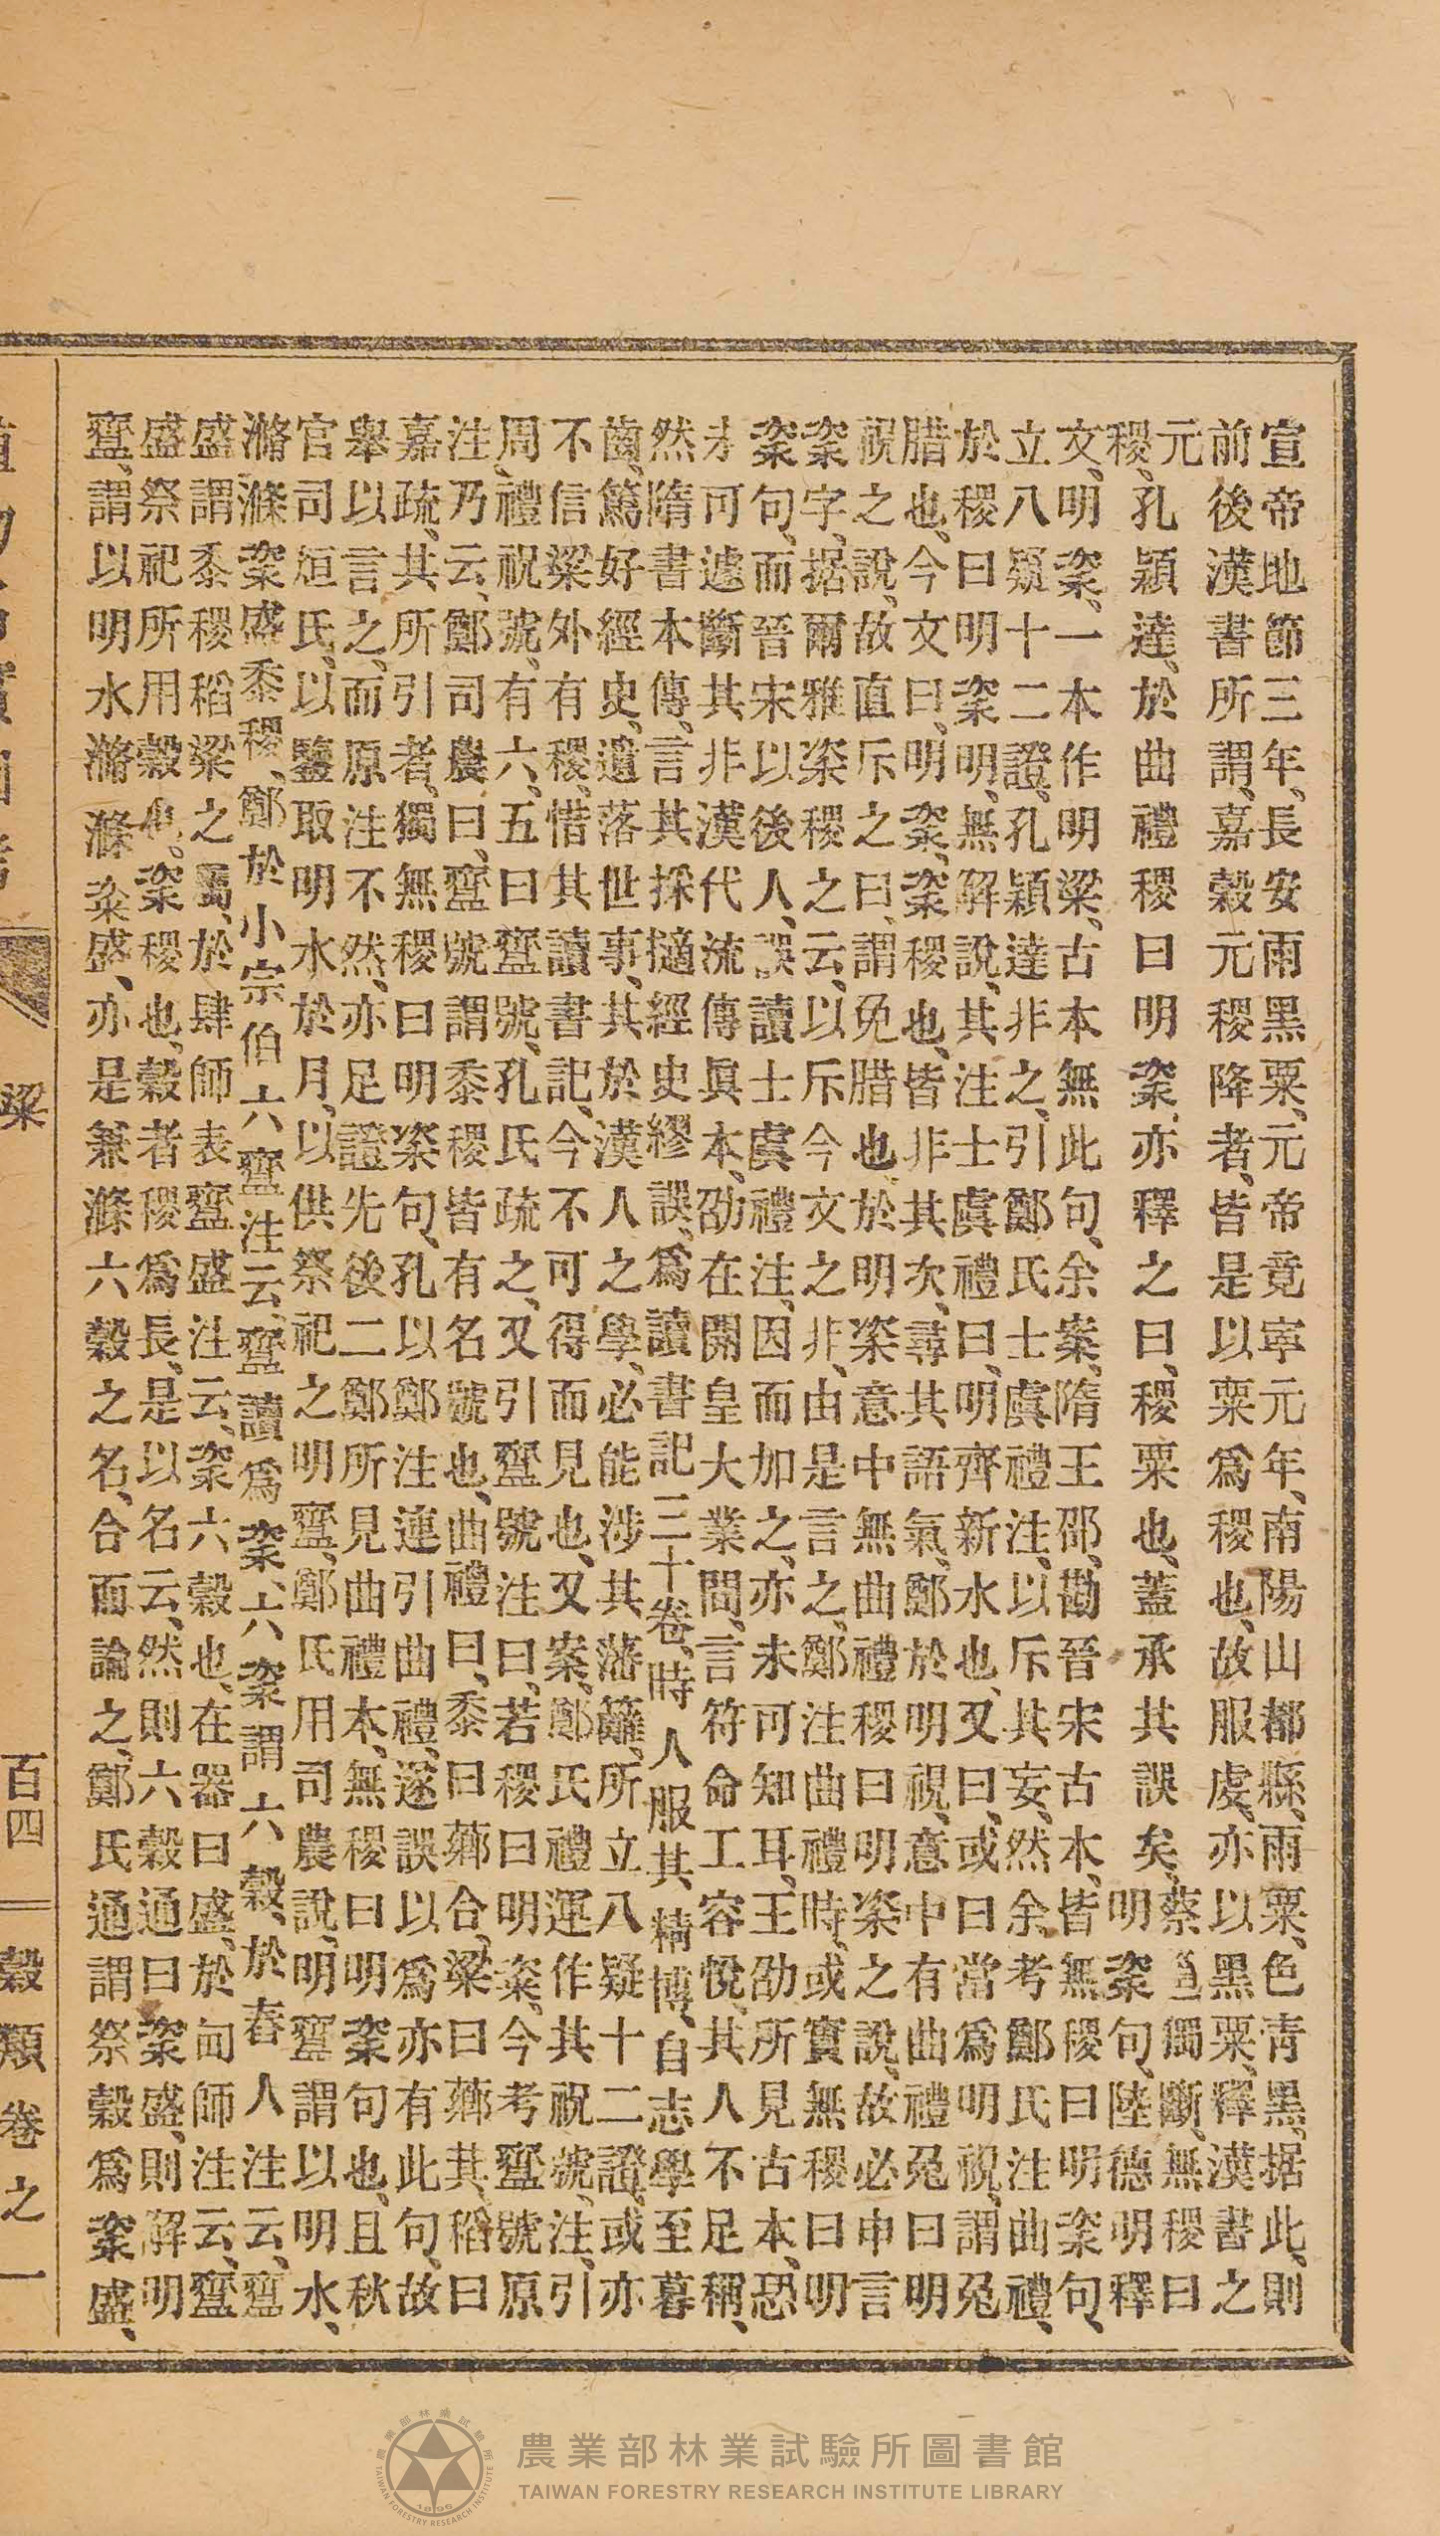 宣帝地節三年、長安雨黑粟、元帝竟寧元年、南陽山都縣、雨粟、色青黑、据此、則
前後漢書所謂、嘉穀元稷降者、皆是以粟爲稷也、故服虔、亦以黑粟、釋漢書之
元稷、孔穎達、於曲禮稷曰明粢、亦釋之曰、稷粟也、蓋承其誤矣、蔡邕獨斷、無稷曰
明粢句、陸德明釋
文、明粢、一本作明粱、古本無此句、余案、隋王邵、勘晉宋古本、皆無稷曰明粢句、
立八疑十二證、孔穎達非之、引鄭氏士虞禮注、以斥其妄、然余考鄭氏注曲禮、
於稷曰明粢明、無解說、其注士虞禮曰、明齊新水也、又曰、或曰當爲明視、謂兔
腊也、今文曰、明粢、粢、稷也、皆非其次、尋其語氣、鄭於明視、意中有曲禮兔曰明
視之說、故直斥之曰、謂免腊也、於明粢意中無曲禮稷曰明粢之說、故必申言
粢字、据爾雅粢稷之云、以斥今文之非、由是言之、鄭注曲禮時、或實無稷曰明
粢句、而晉宋以後人、誤讀士虞禮注、因而加之、亦未可知耳、王劭所見古本、恐
未可遽斷其非漢代流傳眞本、劭在開皇大業間、言符命工容悅、其人不足稱、
然隋書本傳、言其採擿經史繆誤、爲讀書記三十卷、時人服其精博、自志學至暮
齒、篤好經史、遺落世事、其於漢人之學、必能涉其藩籬、所立八疑十二證、或亦
不信粱外有稷、惜其讀書記、今不可得而見也、又案、鄭氏禮運作其祝號、注、引
周禮祝號、有六、五曰齍號、孔氏疏之、又引齍號注曰、若稷曰明粢、今考齍號原
注、乃云、鄭司農曰、齍號謂黍稷皆有名號也、曲禮曰、黍曰薌合、粱曰薌其、稻曰
嘉疏、其所引者、獨無稷曰明粢句、孔以鄭注連引曲禮、遂誤以爲亦有此句、故
舉以言之、而原注不然、亦足證先後二鄭所見曲禮本、無稷曰明粢句也、且秋
官司烜氏、以鑒取明水於月、以供祭祀之明齍、鄭氏用司農說、明齍謂以明水、
滫滌粢盛黍稷、鄭於小宗伯六齍注云、齍讀爲粢、六粢謂六穀、於舂人注云、齍
盛謂黍稷稻粱之屬、於肆師表齍盛注云、粢六穀也、在器曰盛、於甸師注云、齍
盛祭祀所用穀也、粢稷也、穀者稷爲長、是以名云、然則六穀通曰粢盛、則解明
齍、謂以明水滫滌粢盛、亦是兼滌六穀之名、合而論之、鄭氏通謂祭穀爲粢盛、
粱
百四
穀類卷之一
農業部林業試驗所圖書館
TAIWAN FORESTRY RESEARCH INSTITUTE LIBRARY